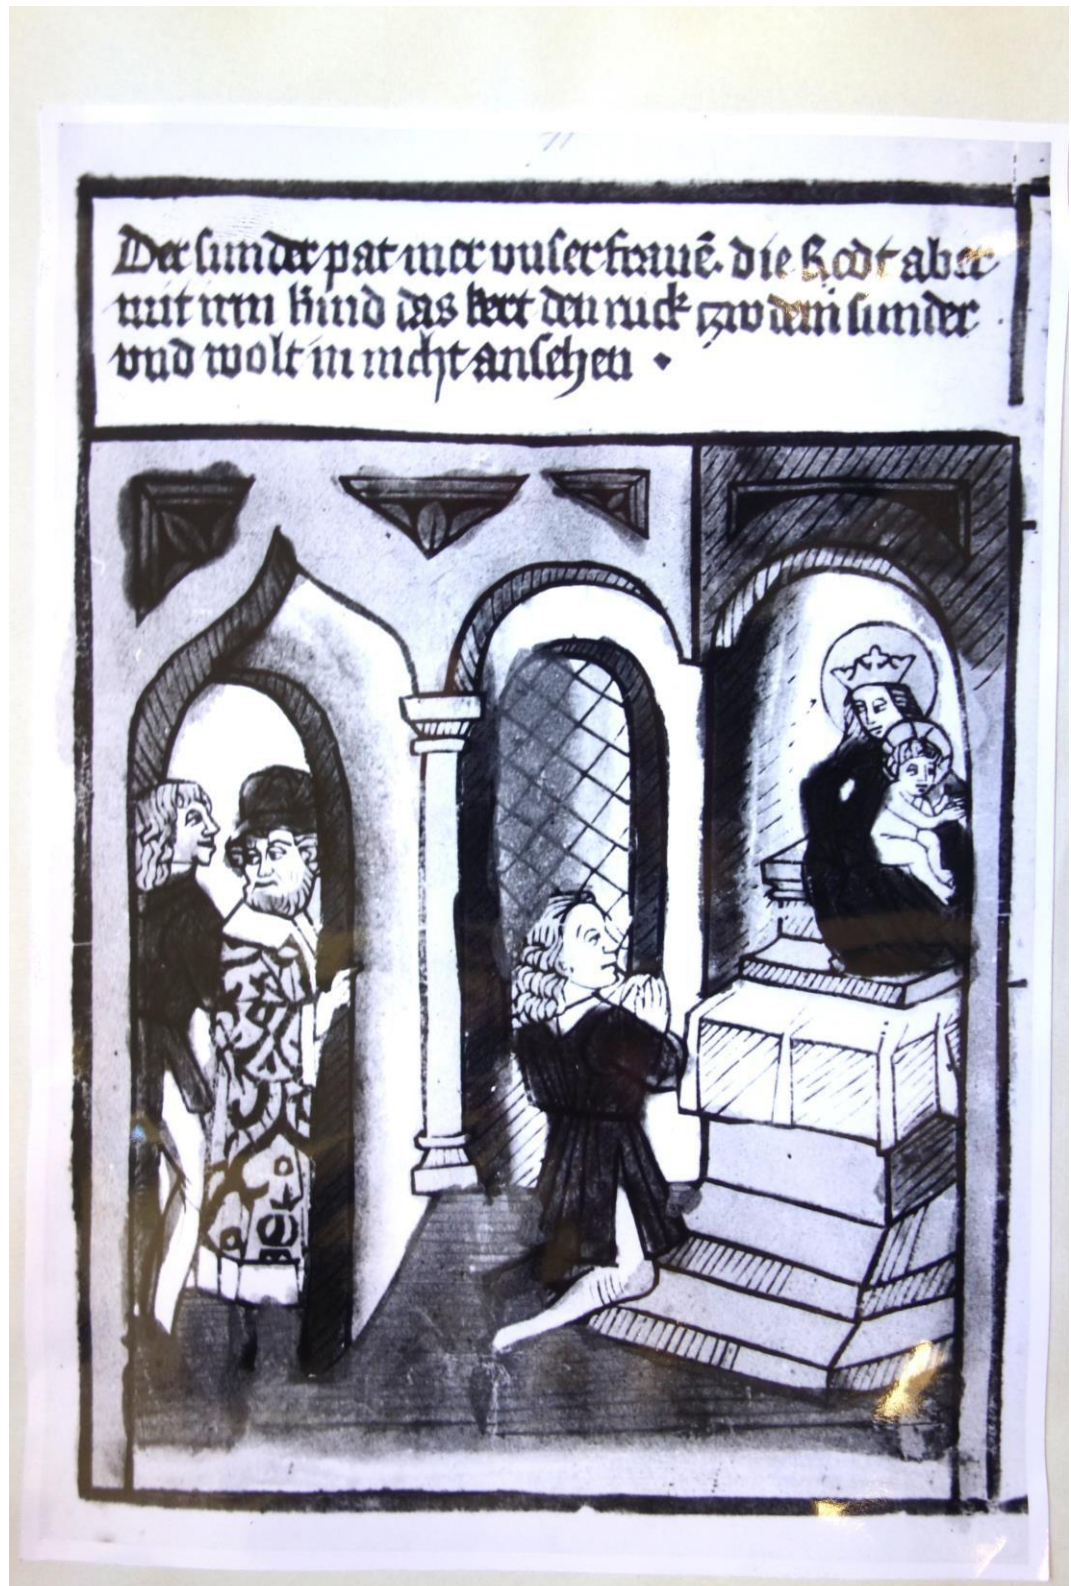 Der sunder pat mer vnser frauē· die Redt aber
mit irm kind das kert den ruck czw dem sunder
vnd wolt in nicht ansehen ⬥